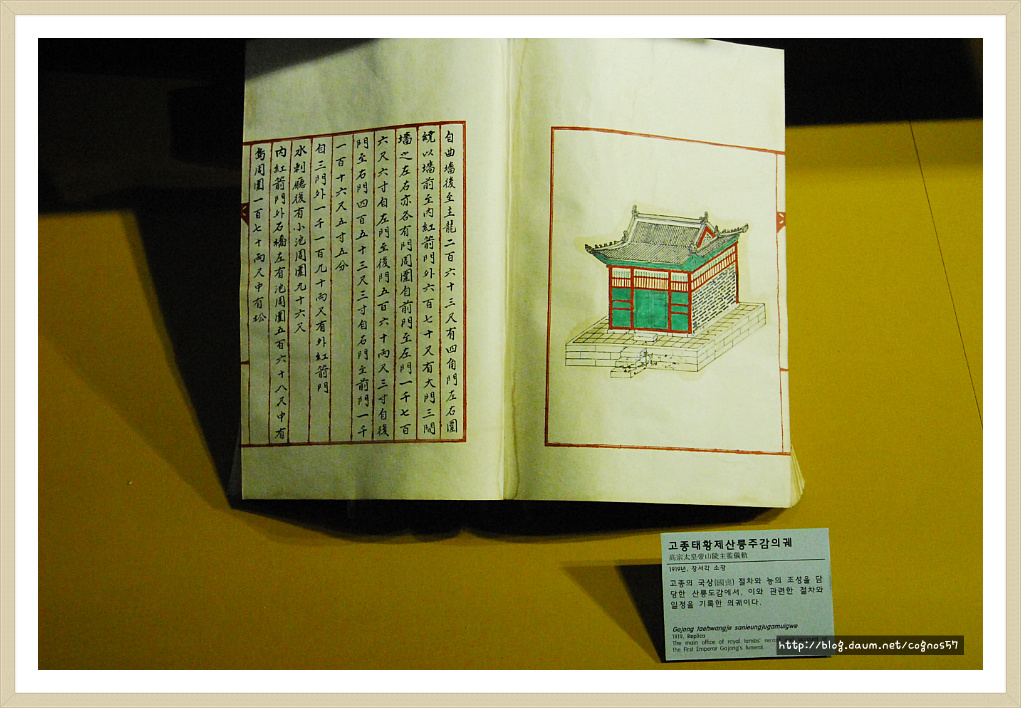 自曲墻後至主龍二百六十三尺有四角門左右圍
繞以墻前至內紅箭門外六百七十尺有大門三間
墻之左右亦各有門周圍自前門至左門一千七百
六尺六寸自左門至後門五百六十兩尺三寸自後
門至右門四百五十三尺三寸自右門至前門一千
一百十六尺五寸五分
自三門外一千一百九十兩尺有外紅箭門
水剌廳後有小池周圍九十六尺
內紅箭門外右墻左有池周圍五百六十八尺中有
島周圍一百七十兩尺中有松
고종태황제산릉주감의궤
高宗太皇帝山陵主監儀軌
1919년, 장서각 소장
고종의 국상(國喪) 절차와 능의 조성을 담
당한 산릉도감에서, 이와 관련한 절차와
일정을 기록한 의궤이다.
Gojong taehwangje sanieungjugamuigwe
1919, Replica
The main office of royal tombs'
the First Emperor Gojong's funeral.
http://blog.daum.net/cognos57